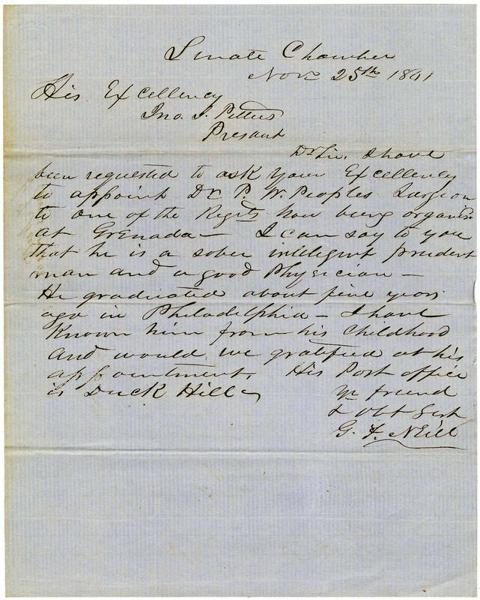 Senate Chamber
Nov 25th 1861
His Excellency
Jno. J. Pettus
Present
Dr Sir. I have
been requested to ask your Excellency
to appoint Dr P. W. Peoples Surgeon
to one of the Regts now being organised
at Grenada — I can say to you
that he is a sober intelignt prudent
man and a good Physician —
He graduated about five years
ago in Philadelphia — I have
Known him from his childhood
and would we gratified at his
appointment. His Post office
is Duck Hill —
Yr friend
& Obt Svt
G. F. Neill